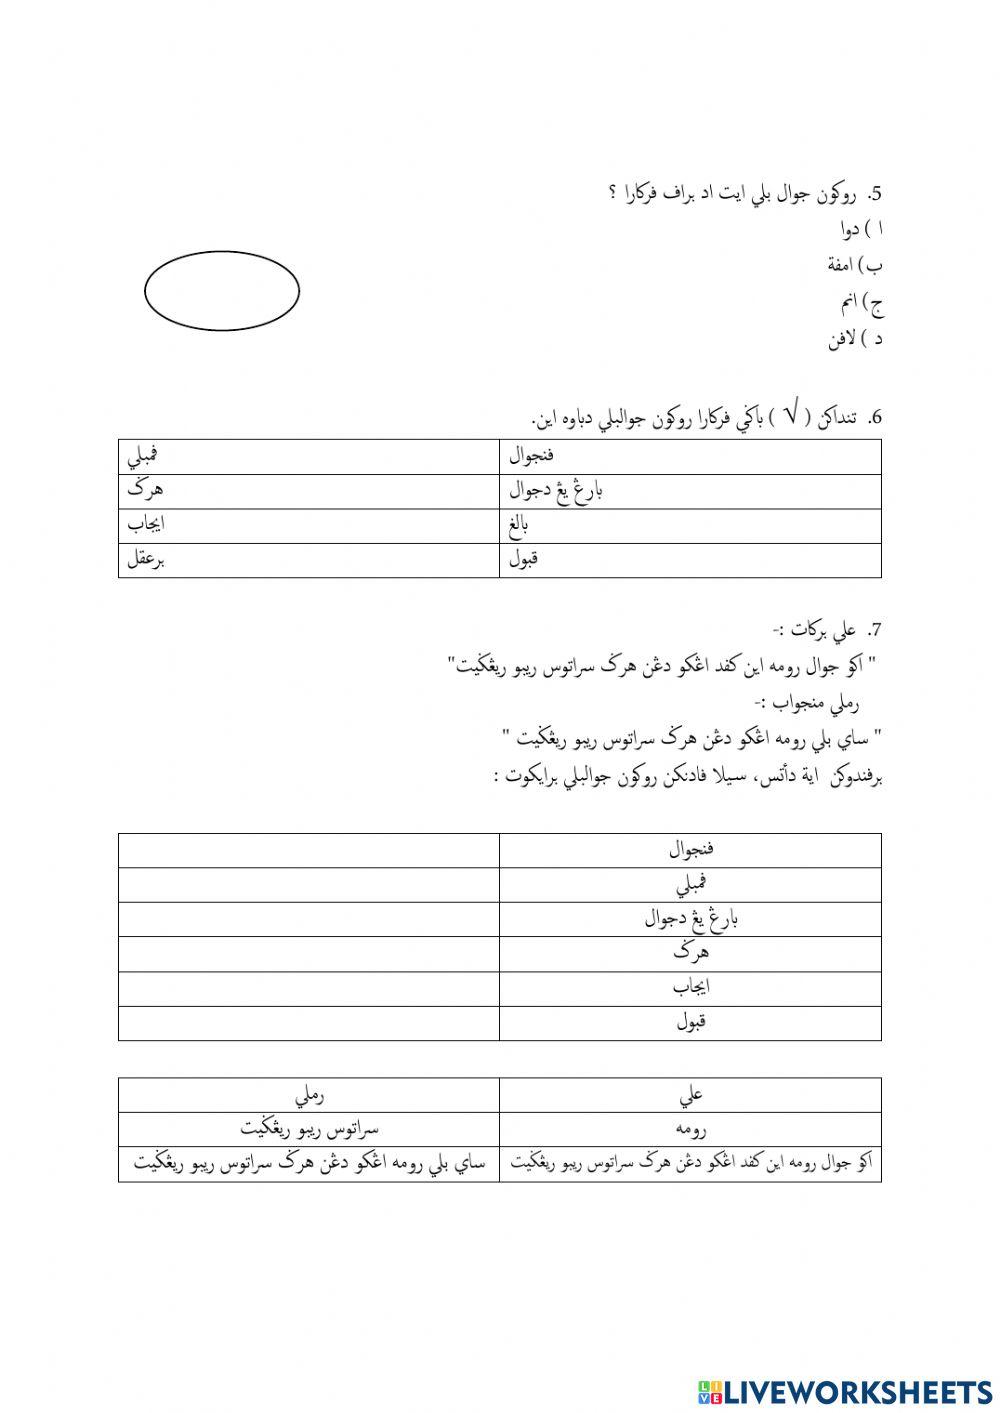 5. روكون جوال بلي ايت اد براف فركارا ؟
ا ) دوا
ب) امفة
ج) انم
د ) لافن
6. تنداكن ( √ ) باݢي فركارا روكون جوالبلي دباوه اين.
فنجوال	فمبلي
بارڠ يڠ دجوال	هرݢ
بالغ	ايجاب
قبول	برعقل
7. علي بركات :-
" اکو جوال رومه اين كفد اڠكو دڠن هرݢ سراتوس ريبو ريڠݢيت"
رملي منجواب :-
" ساي بلي رومه اڠكو دڠن هرݢ سراتوس ريبو ريڠݢيت "
برفندوكن اية دأتس، سيلا فادنكن روكون جوالبلي برايكوت :
فنجوال
فمبلي
بارڠ يڠ دجوال
هرݢ
ايجاب
قبول
علي	رملي
رومه	سراتوس ريبو ريڠݢيت
اکو جوال رومه اين كفد اڠكو دڠن هرݢ سراتوس ريبو ريڠݢيت	ساي بلي رومه اڠكو دڠن هرݢ سراتوس ريبو ريڠݢيت
LIVEWORKSHEETS